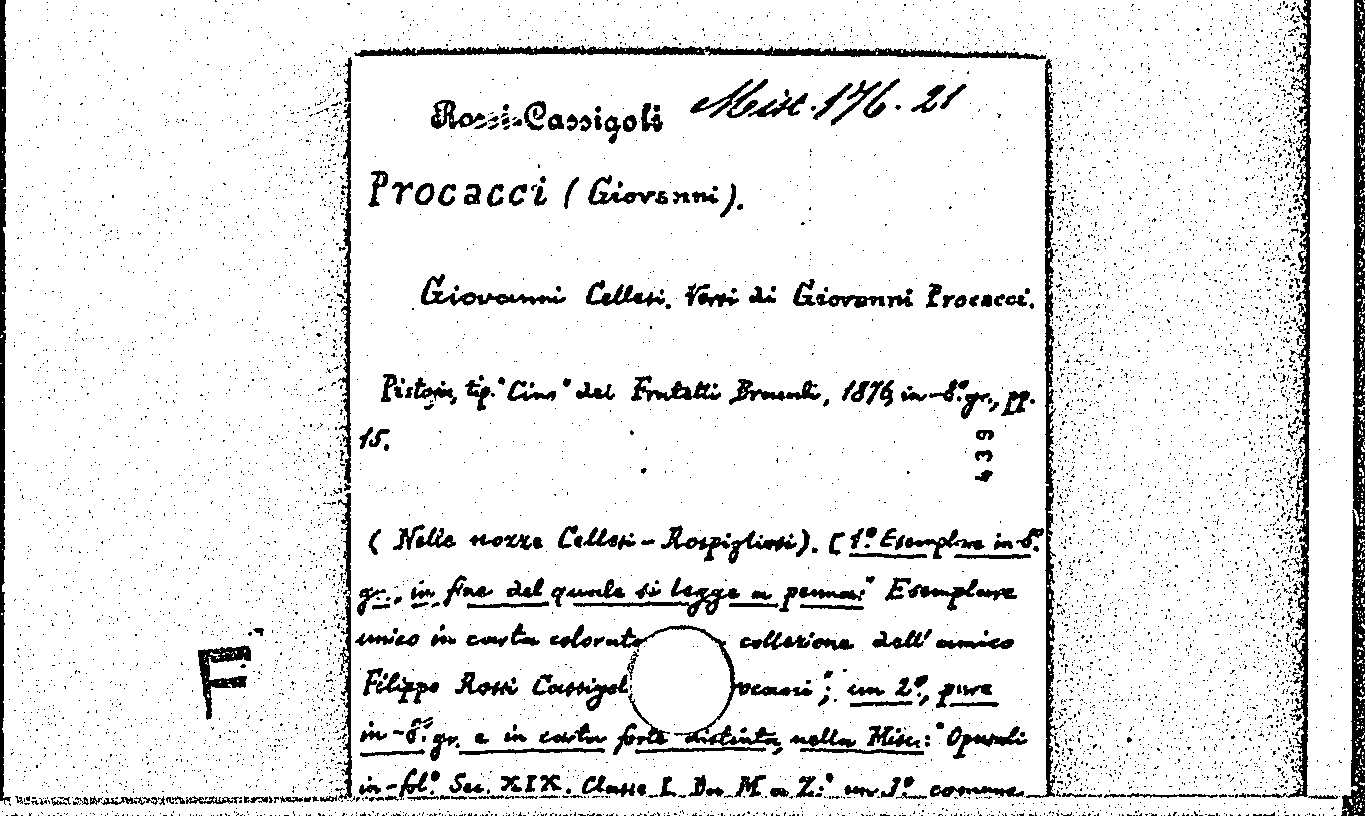 Rossi-Cassigoli Misc. 176. 21
Procacci (Giovanni).
Giovanni Cellesi. Versi di Giovanni Procacci.
Pistoia, tip. "Cino" dei Fratelli Bracali, 1876, in-8.° gr., pp.
15.
439
( Nelle nozze Cellesi-Rospigliosi). [ 1.° Esemplare in-8.°
gr., in fine del quale si legge a penna: " Esemplare
unico in carta colorata collezione dell' amico
Filippo Rossi Cassigol ; un 2.°, pure
in-8.° gr. e in carta forte distinta, nella Misc.: " Opuscoli
in-fol.° Sec. XIX. Classe I. Da M a Z: " un 3.° comune
F